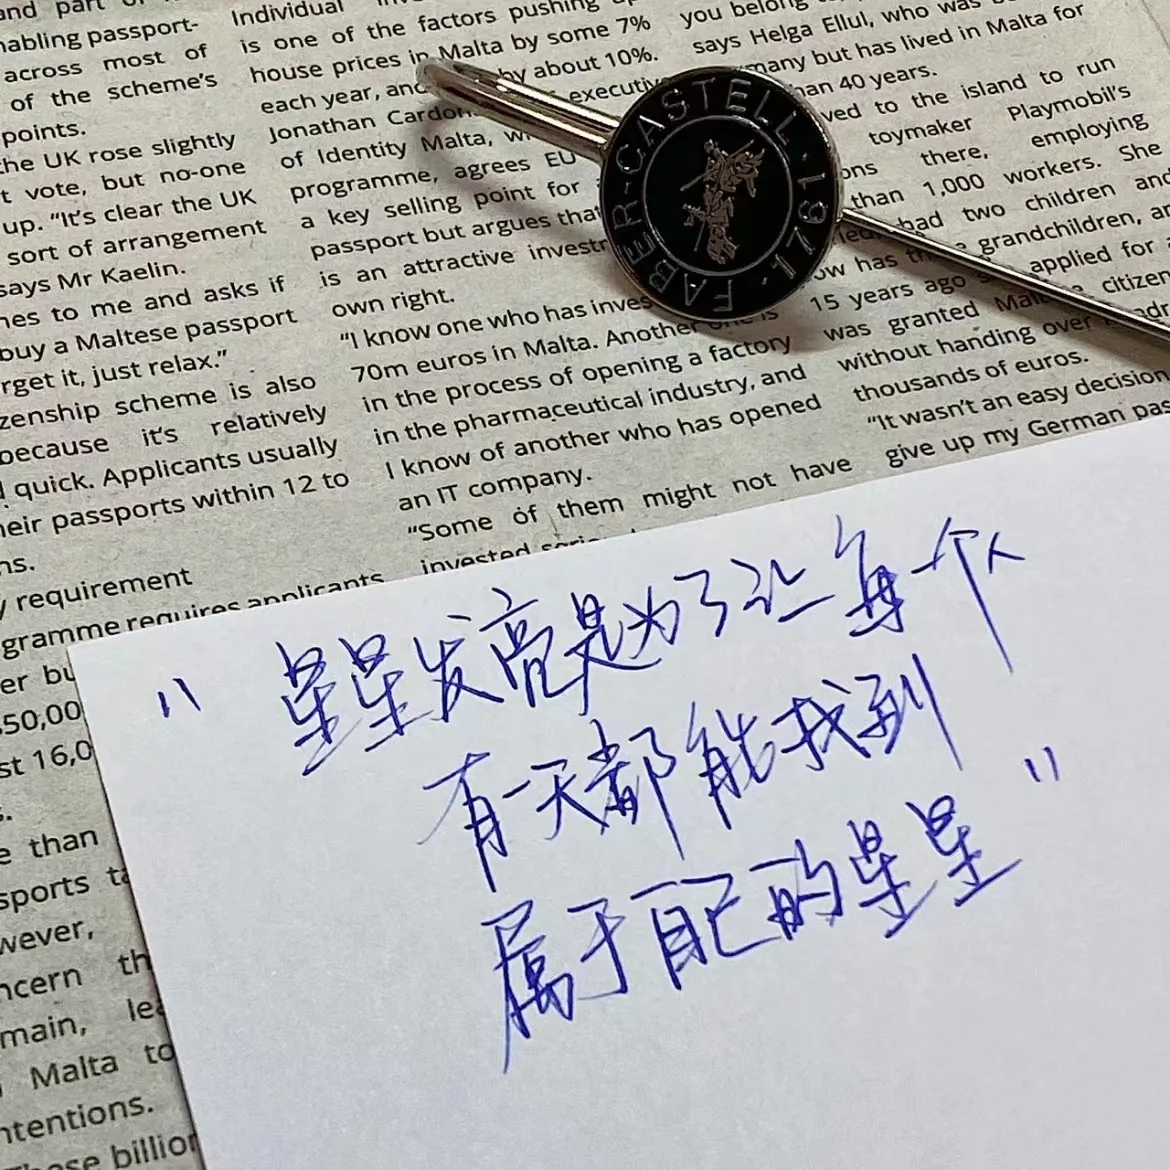 and part
nabling passport-
across most of
of the scheme's
points.
the UK rose slightly
t vote, but no-one
up. "It's clear the UK
sort of arrangement
says Mr Kaelin.
nes to me and asks if
buy a Maltese passport
rget it, just relax."
zenship scheme is also
because it's relatively
quick. Applicants usually
heir passports within 12 to
ns.
y requirement
gramme requires applicants
er bu
50,00
st 16,0
e than
sports ta
wever,
ncern th
main, lea
Malta to
ntentions.
These billion
Individual
is one of the factors pushing up
house prices in Malta by some 7%
each year, and by about 10%.
Jonathan Cardona executive
of Identity Malta, wh
programme, agrees EU
a key selling point for
passport but argues that
is an attractive investm
own right.
"I know one who has inves
70m euros in Malta. Another one is
in the process of opening a factory
in the pharmaceutical industry, and
I know of another who has opened
an IT company.
"Some of them might not have
invested
you belong to
says Helga Ellul, who was
many but has lived in Malta for
han 40 years.
ved to the island to run
toymaker Playmobil's
ons there, employing
than 1,000 workers. She
had two children and
ow has grandchildren, an
15 years ago applied for
was granted citizen
without handing over
thousands of euros.
"It wasn't an easy decision
give up my German pas
FABER-CASTELL · 1761 ·
"星星发亮是为了让每一个人
有一天都能找到
属于自己的星星"